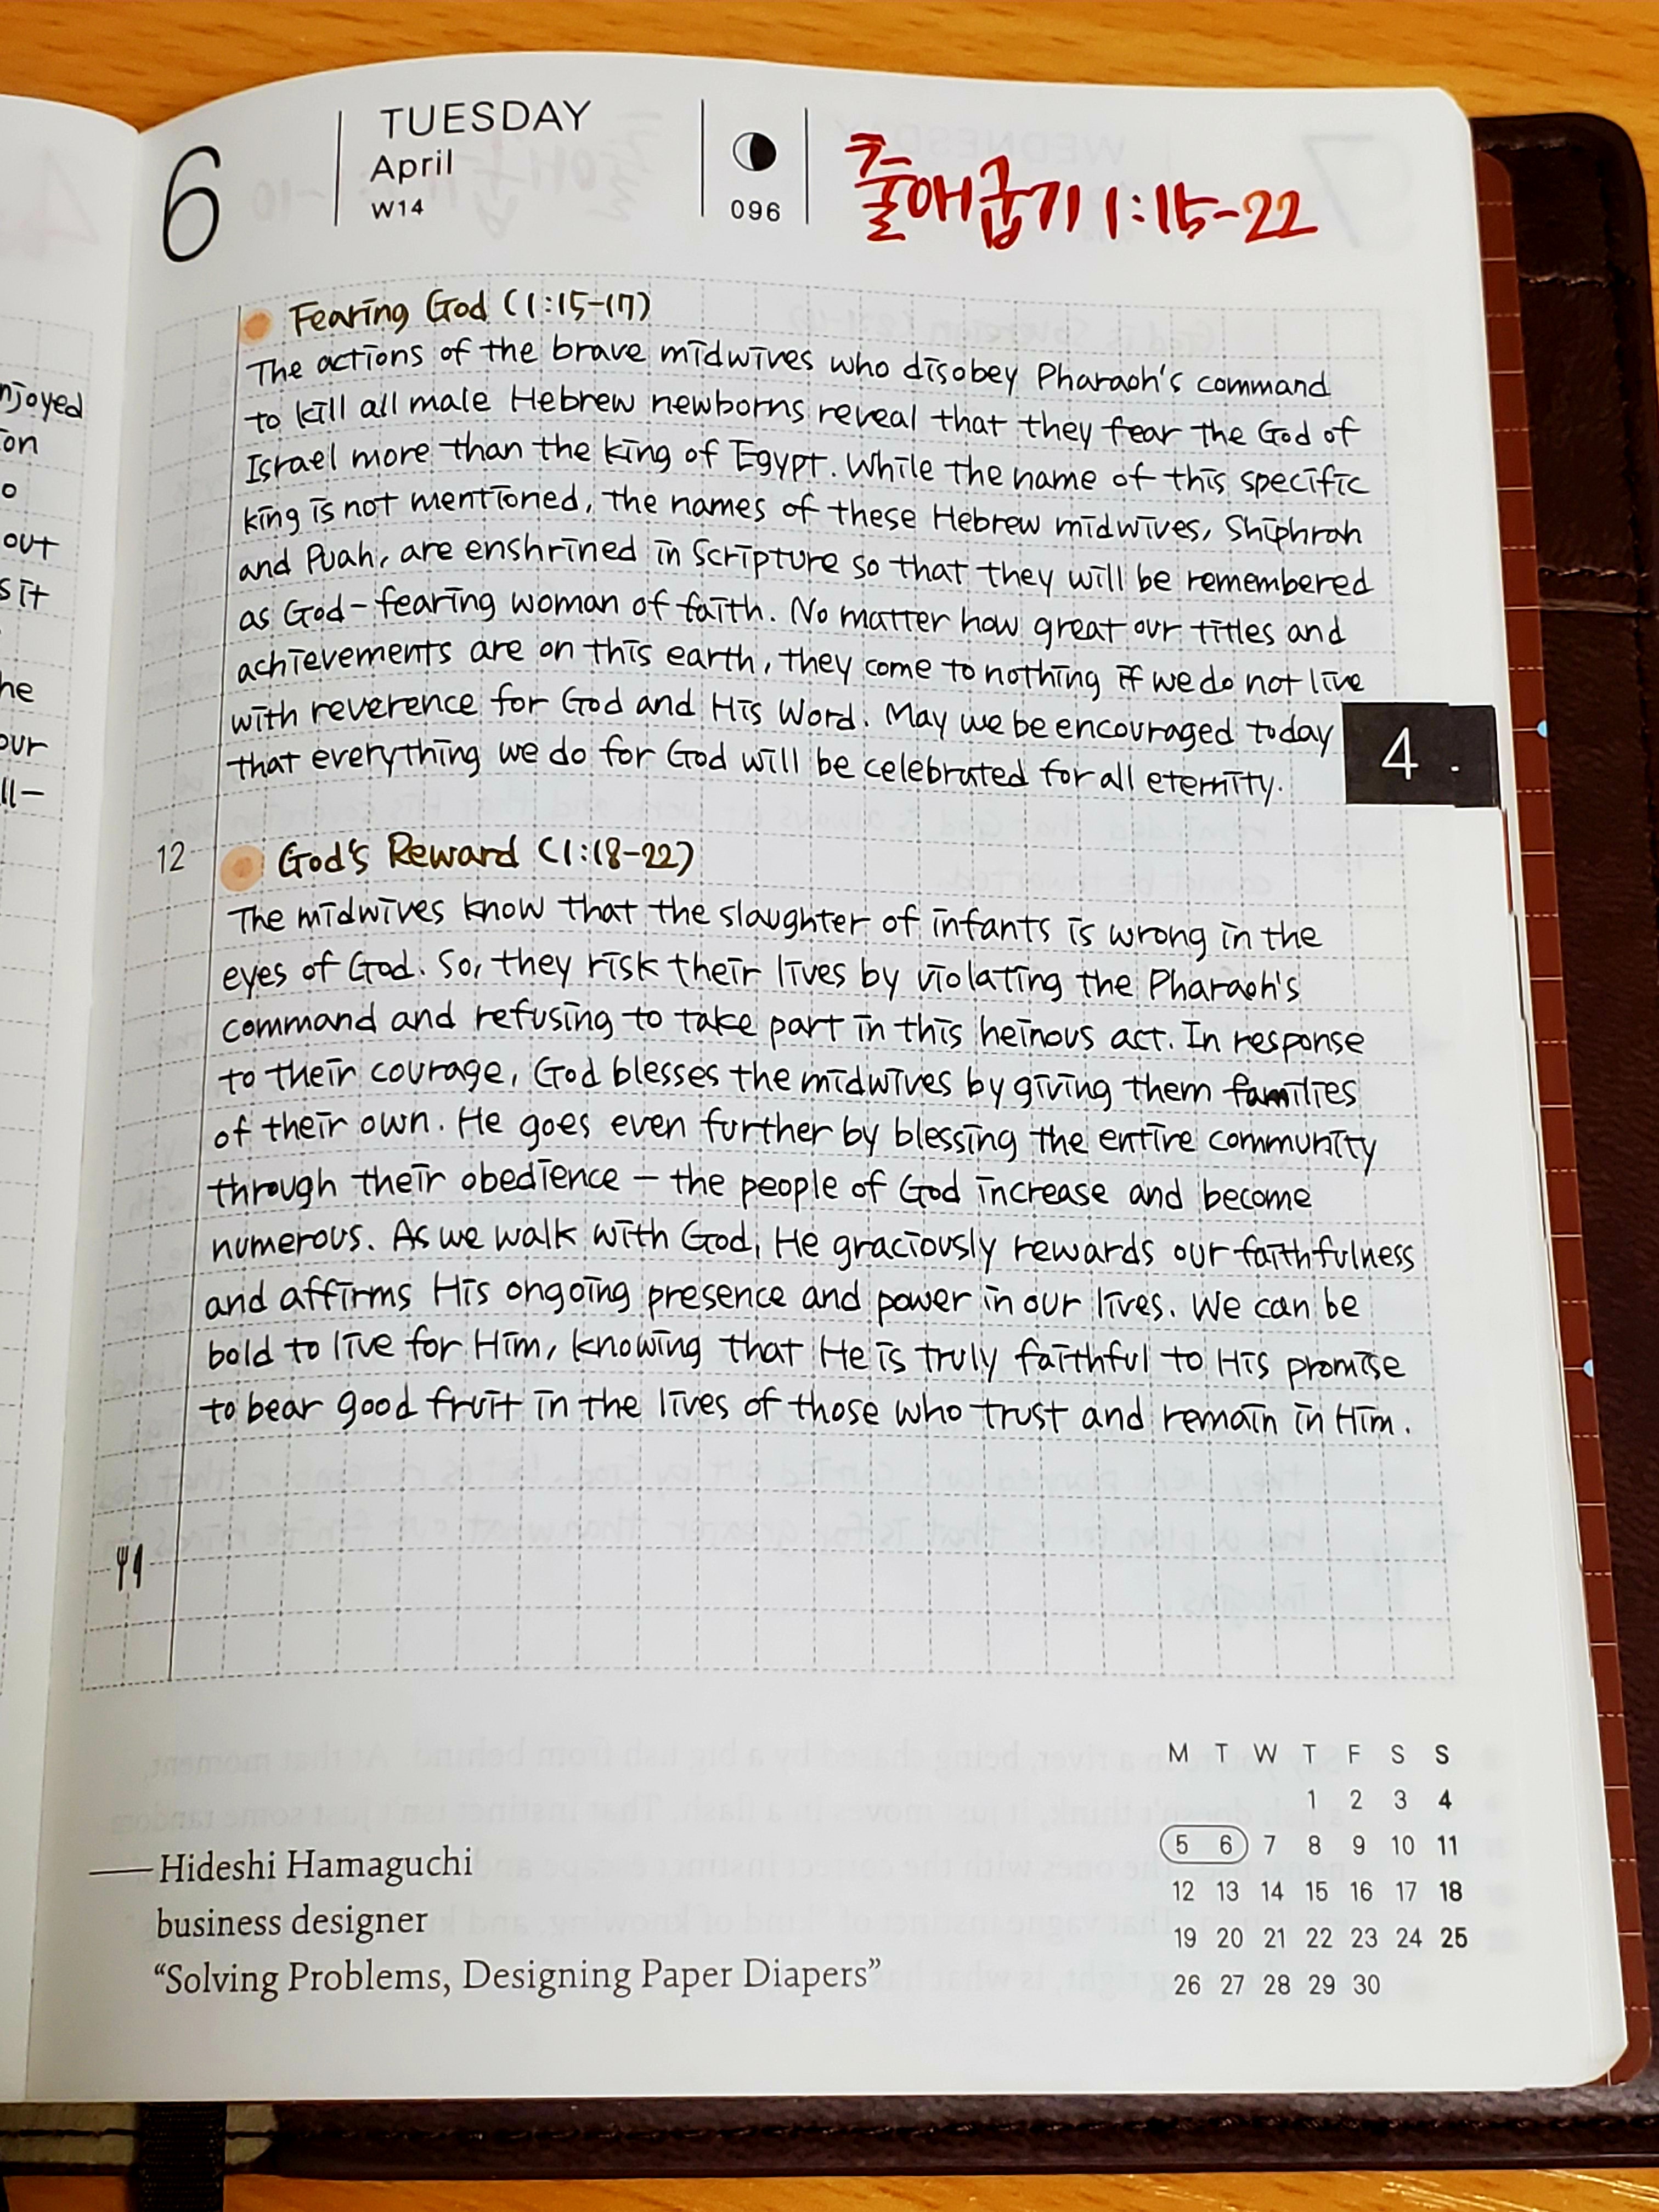 6
TUESDAY
April
W14
096
출애굽기 1:15-22
Fearing God (1:15-17)
The actions of the brave midwives who disobey Pharaoh's command
to kill all male Hebrew newborns reveal that they fear the God of
Israel more than the king of Egypt. While the name of this specific
king is not mentioned, the names of these Hebrew midwives, Shiphrah
and Puah, are enshrined in Scripture so that they will be remembered
as God-fearing woman of faith. No matter how great our titles and
achievements are on this earth, they come to nothing if we do not live
with reverence for God and His Word. May we be encouraged today
that everything we do for God will be celebrated for all eternity.
4
12
God's Reward (1:18-22)
The midwives know that the slaughter of infants is wrong in the
eyes of God. So, they risk their lives by violating the Pharaoh's
command and refusing to take part in this heinous act. In response
to their courage, God blesses the midwives by giving them families
of their own. He goes even further by blessing the entire community
through their obedience – the people of God increase and become
numerous. As we walk with God, He graciously rewards our faithfulness
and affirms His ongoing presence and power in our lives. We can be
bold to live for Him, knowing that He is truly faithful to His promise
to bear good fruit in the lives of those who trust and remain in Him.
njoyed
on
o
out
sit
he
our
ll-
M T W T F S S
1 2 3 4
5 6 7 8 9 10 11
12 13 14 15 16 17 18
19 20 21 22 23 24 25
26 27 28 29 30
—Hideshi Hamaguchi
business designer
“Solving Problems, Designing Paper Diapers”